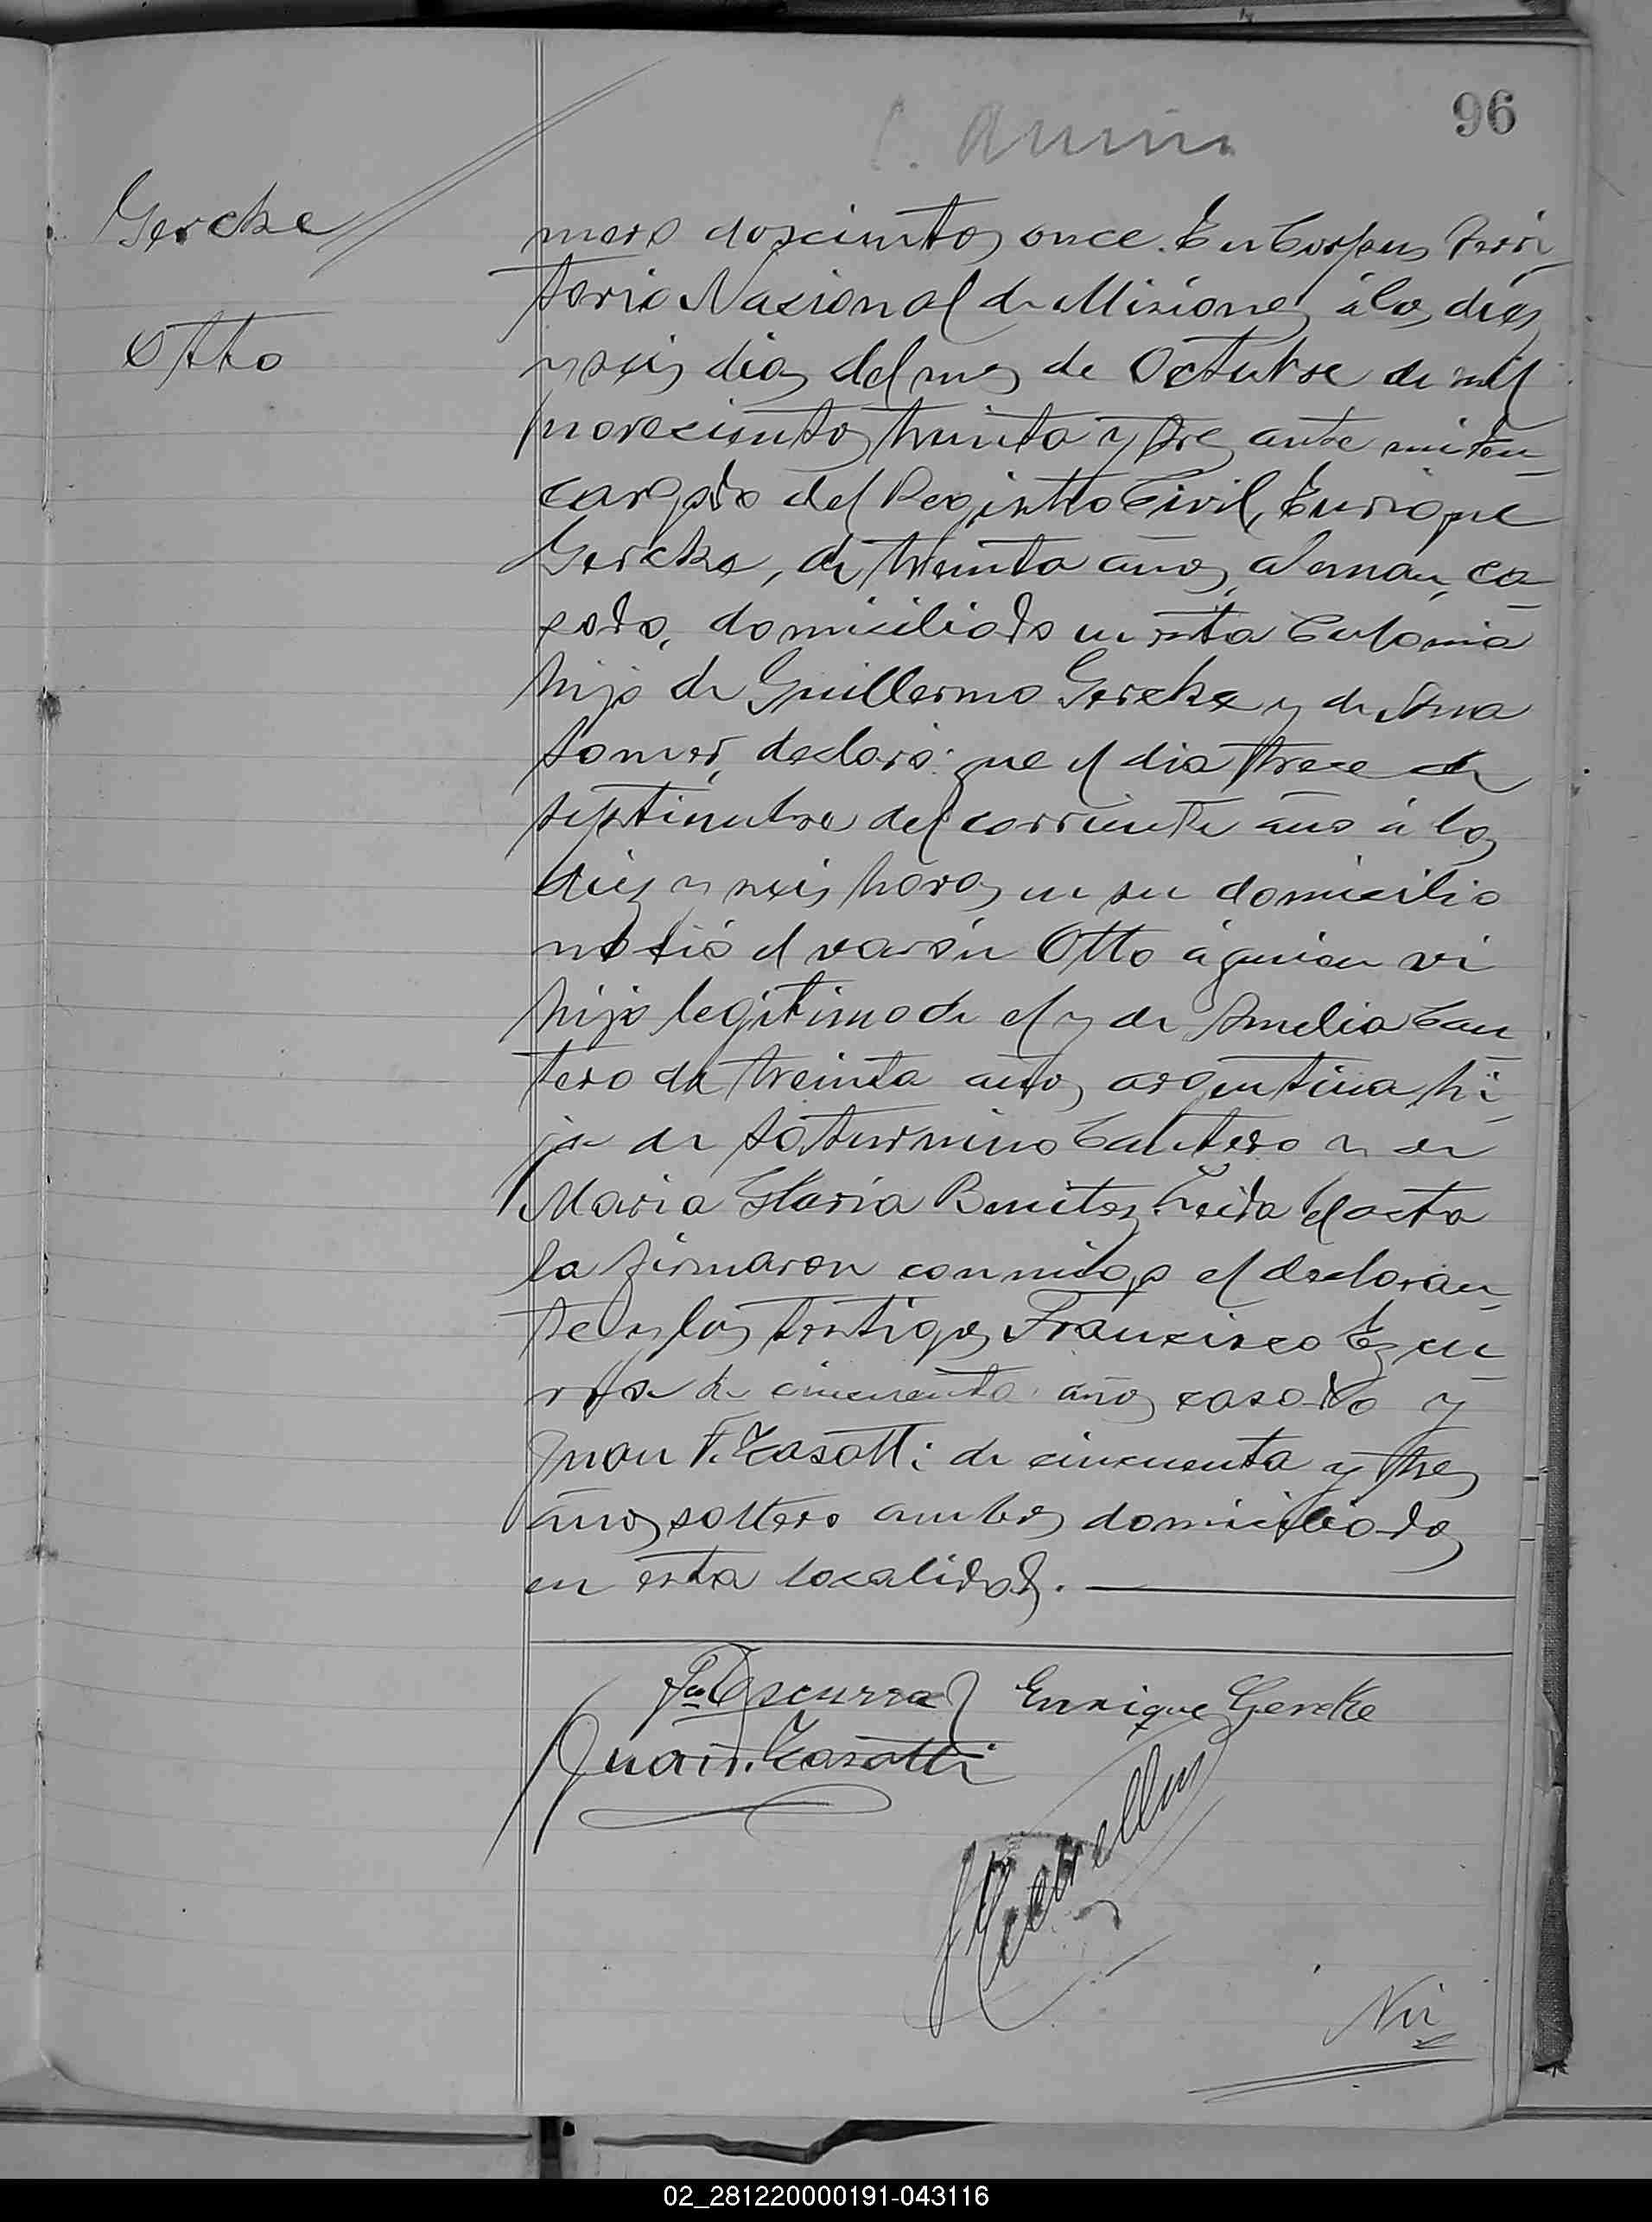 96
Gercke
Otto
mero doscientos once. En Corpus Terri-
torio Nacional de Misiones á los diez
y seis dias del mes de Octubre de mil
novecientos treinta y tres ante mi En-
cargado del Registro Civil, Enrique
Gercke, de treinta años, aleman, ca-
sado, domiciliado en esta Colonia
hijo de Guillermo Gercke y de Ana
declaró: que el dia trece de
septiembre del corriente año á las
diez y seis horas en su domicilio
nació el varón Otto á quien vi
hijo legitimo de el y de Amelia Can-
tero de treinta años, argentina hi-
ja de Saturnino Cantero y de
Maria Gloria Benitez. Leida el acta
la firmaron conmigo el declaran-
te y los testigos Francisco Ezcu-
rra de cincuenta años casado y
Juan F. Zasotti de cincuenta y tres
años soltero ambos domiciliados
en esta localidad.
Fco Escurra Enrique Gercke
Juan F. Zasotti
02_281220000191-043116